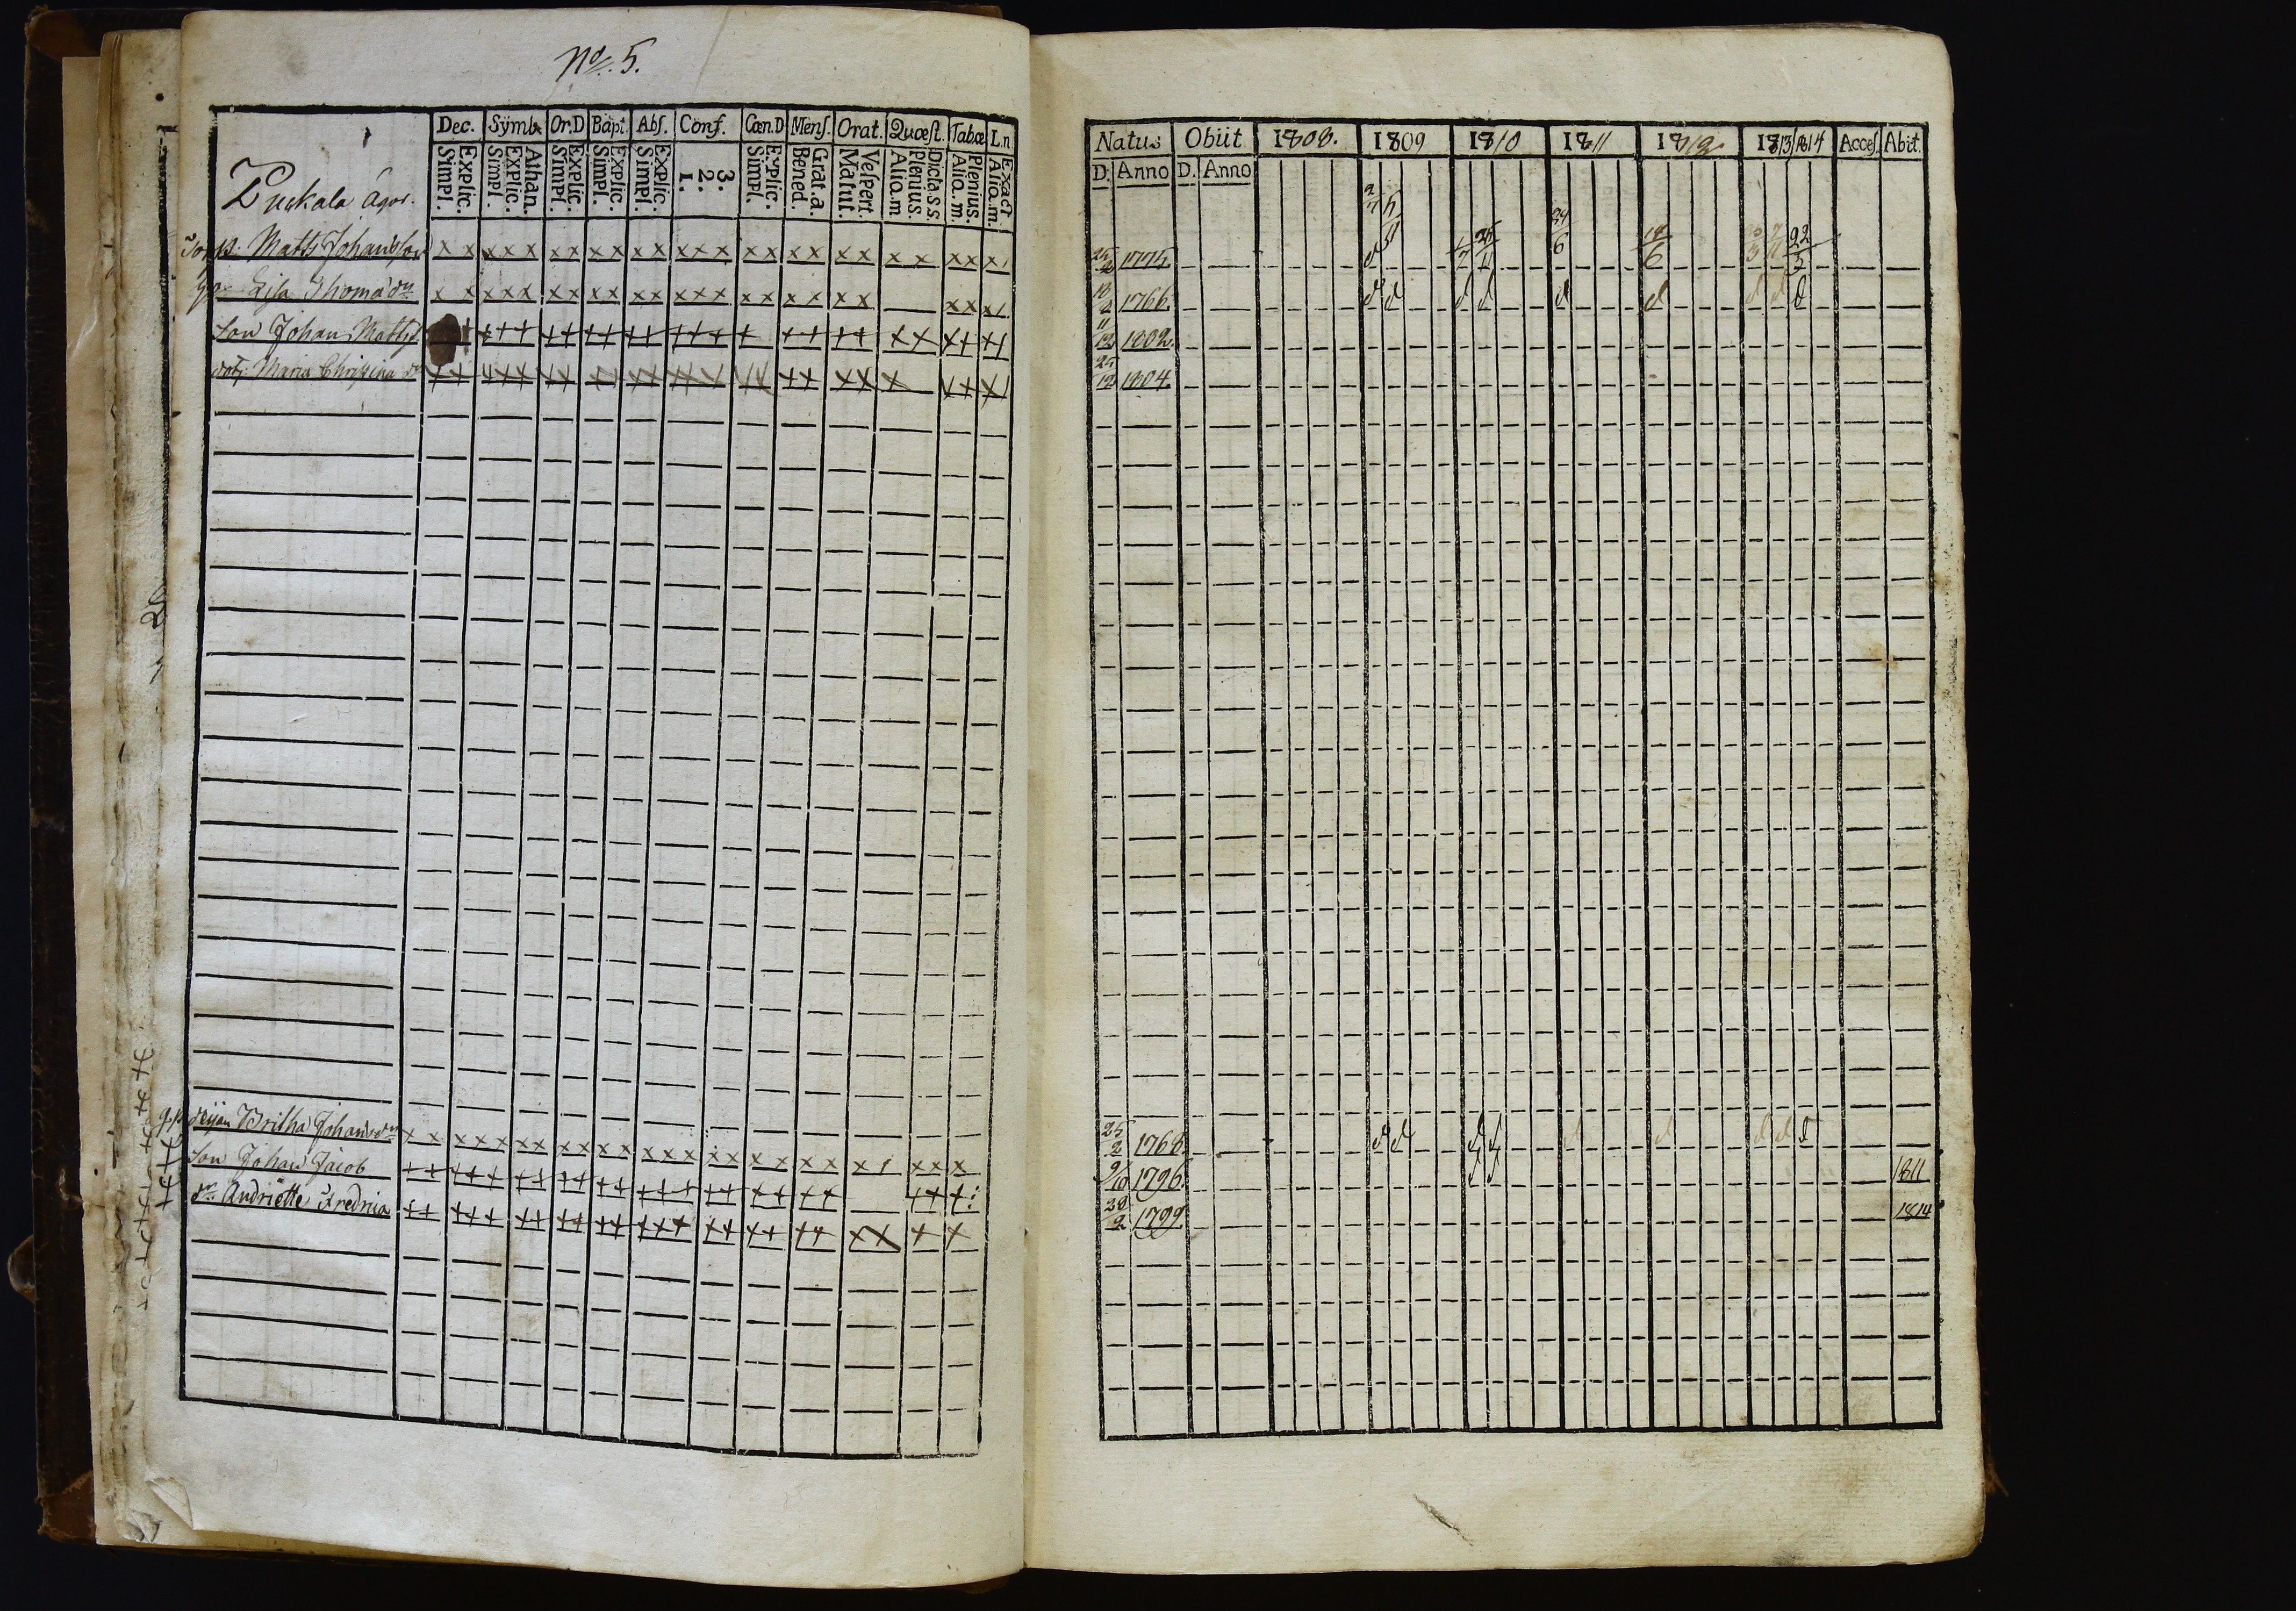 No. 5.
Dec. Symb. Or.D Bapt. Abs. Conf. Cœn.D Mens. Orat. Quæst. Tabæ L.n
Explic. Simpl. Athan. Explic. Simpl. Explic. Simpl. Explic. Simpl. Explic. Simpl. 3. 2. 1. Explic. Simpl. Grat.a. Bened. Vespert. Matut. Dicta s.s. Plenius. Aliq.m Plenius. Aliq.m. Exact Aliq.m.
Puckala ägor.
Torp. Matts Johansson x x x x x x x x x x x x x x x x x x x x x x x x x
Lisa Thomæ dr x x x x x x x x x x x x x x x x x x x x x x
Son Johan Matts + + + + + + + + + + + + + + + + + x x x x x
dotr Maria Christina dr + + + + + + + + + + + + + + + + + x x x + + x
g.p. Britha Johans dr x x x x x x x x x x x x x x x x x x x x x x x
Son Johan Jacob + + + + + + + + + + + + + + + + + + + + +
dr Andriette Fredrica + + + + + + + + + + + + + + + + + + x x x x
Natus Obiit 1808. 1809 1810 1811 1812 1813/1814 Acces. Abit.
D. Anno D. Anno
25/2 1775
18/2 1766 d d d d d d d d d
11/12 1802
25/12 1804
25/2 1768 d d d d d d d d d
9/10 1796 1811
28/2 1799 1814